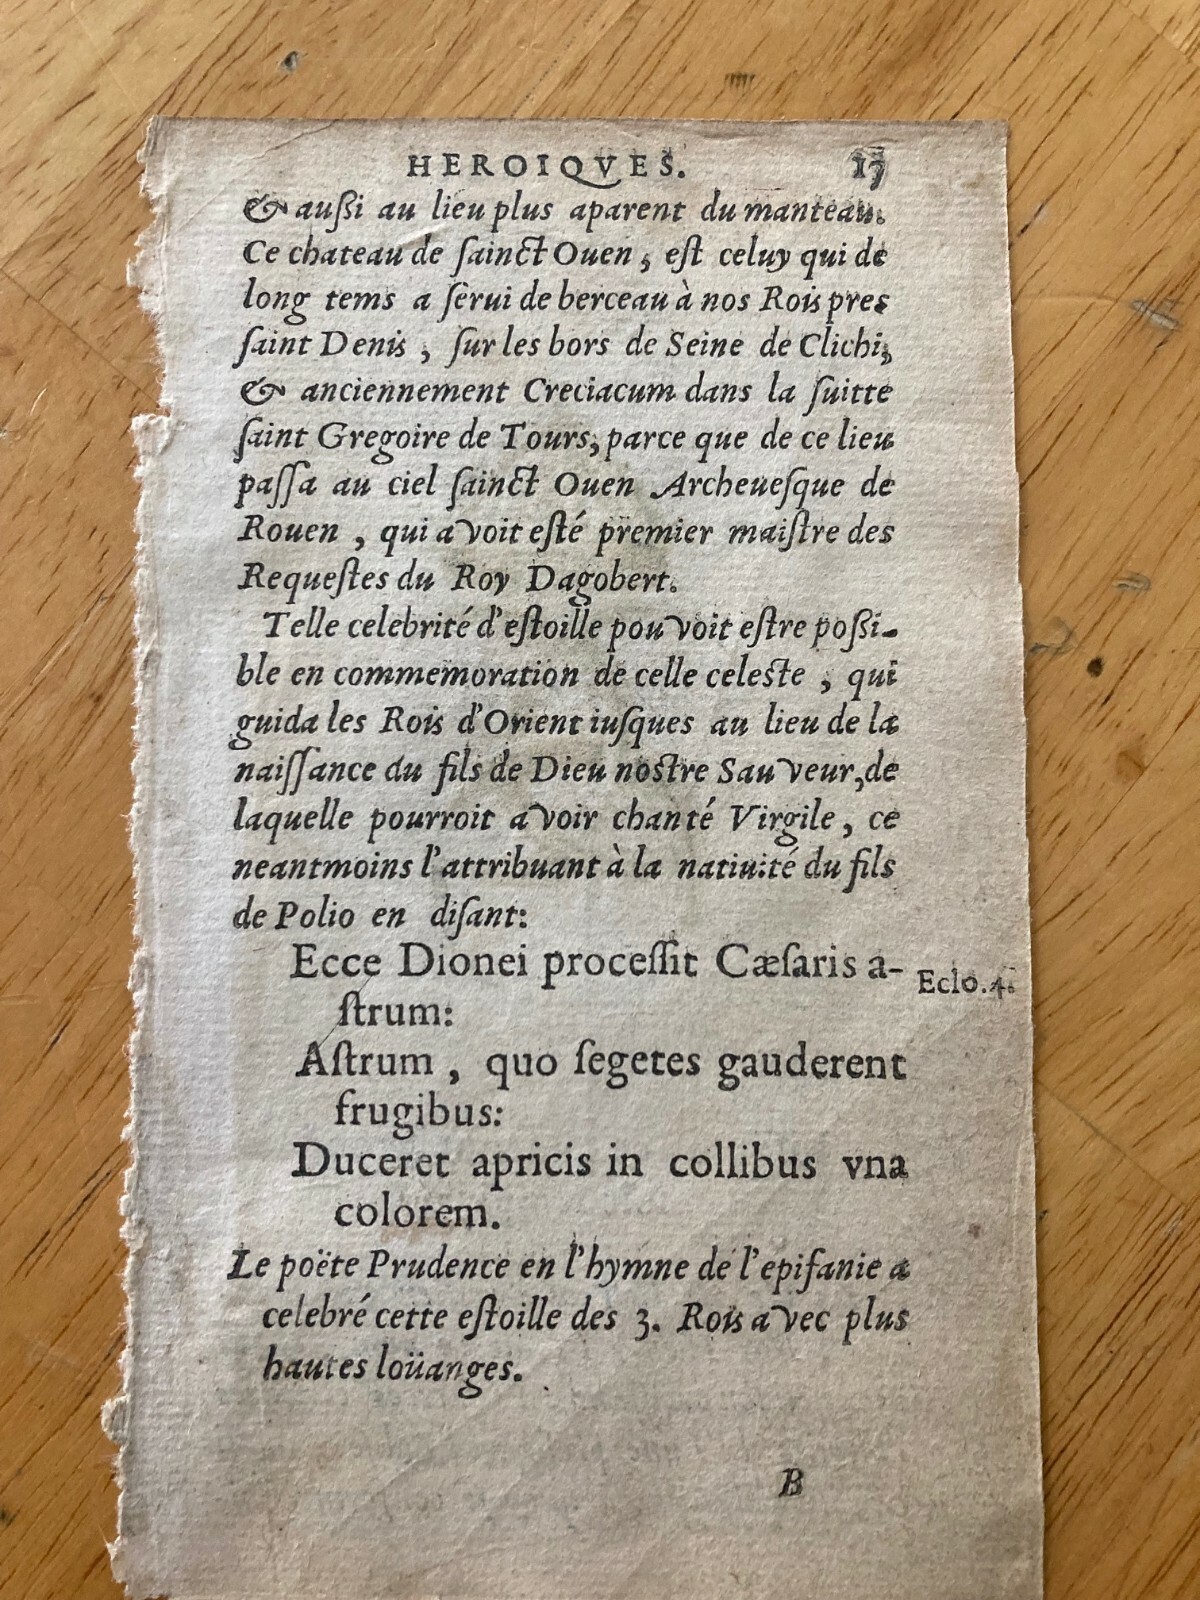 HEROIQVES. 17
& außi au lieu plus aparent du manteau.
Ce chateau de ſainct Ouen, eſt celuy qui de
long tems a ſerui de berceau à nos Rois pres
ſaint Denis, ſur les bors de Seine de Clichi,
& anciennement Creciacum dans la ſuitte
ſaint Gregoire de Tours, parce que de ce lieu
paſſa au ciel ſainct Ouen Archeueſque de
Rouen, qui avoit eſté premier maiſtre des
Requeſtes du Roy Dagobert.
Telle celebrité d'eſtoille pouvoit eſtre poßi-
ble en commemoration de celle celeste, qui
guida les Rois d'Orient iuſques au lieu de la
naiſſance du fils de Dieu nostre Sauveur, de
laquelle pourroit avoir chanté Virgile, ce
neantmoins l'attribuant à la natiuité du fils
de Polio en diſant:
Ecce Dionei proceſſit Cæſaris a-
ſtrum:
Eclo. 4.
Aſtrum, quo ſegetes gauderent
frugibus:
Duceret apricis in collibus vna
colorem.
Le poëte Prudence en l'hymne de l'epifanie a
celebré cette eſtoille des 3. Rois avec plus
hautes loüanges.
B